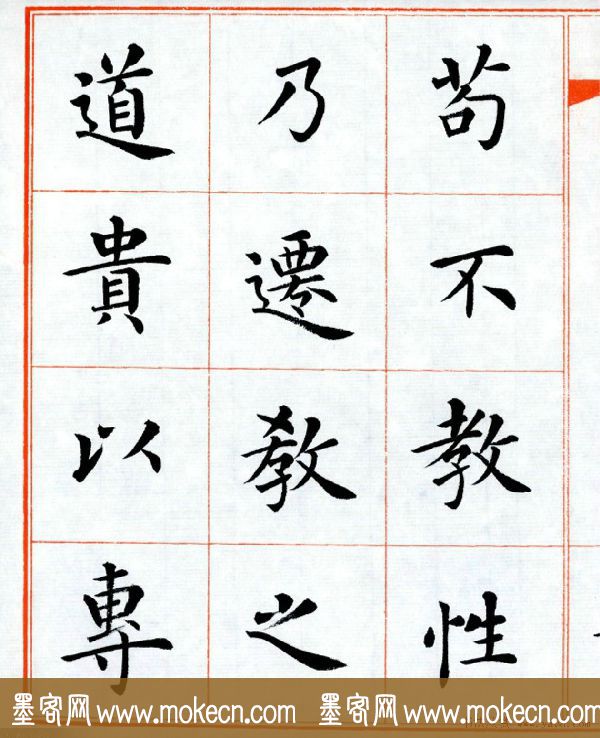 苟不教性
乃遷教之
道貴以專
墨客网 www.mokecn.com 墨客网 www.mokecn.com